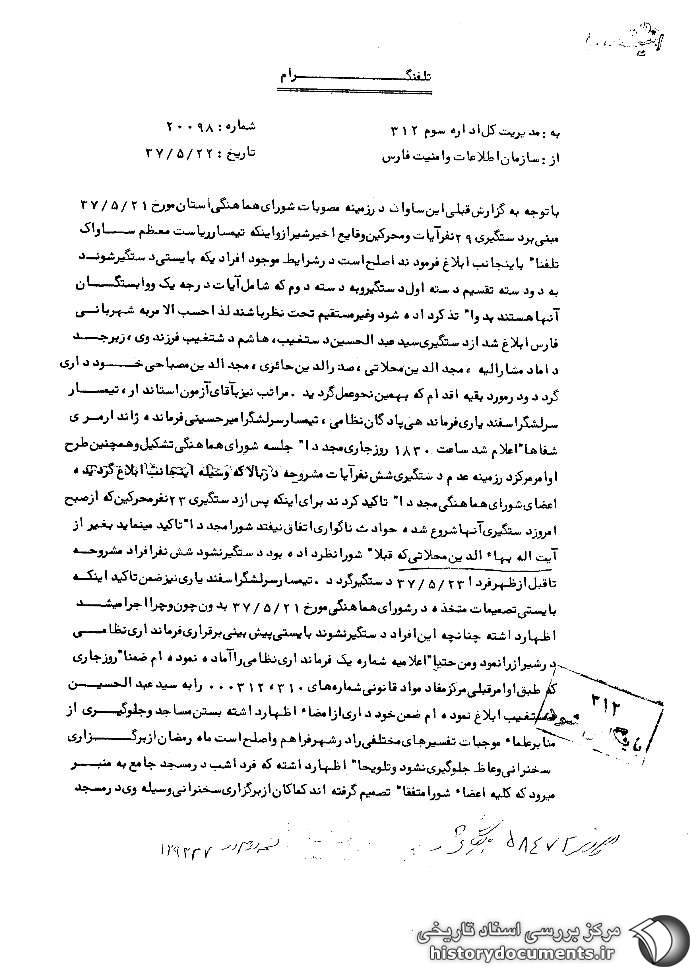 تلفنگرام
به : مدیریت کل اداره سوم ۳۱۲
شماره : ۲۰۰۹۸
از : سازمان اطلاعات وامنیت فارس
تاریخ : ۳۷/۵/۲۲
باتوجه به گزارش قبلی این ساواک درزمینه مصوبات شورای هماهنگی استان مورخ ۳۷/۵/۲۱
مبنی برد ستگیری ۲۹ نفرآیات ومحرکین وقایع اخیرشیرازواینکه تیمسارریاست معظم ساواک
تلفنا" باینجانب ابلاغ فرمودند اصلح است درشرایط موجود افراد یکه بایستی دستگیرشوند
به دودسته تقسیم دسته اول دستگیروبه دسته دوم که شامل آیات درجه یک ووابستگان
آنها هستند بدوا" تذکرداده شود وغیرمستقیم تحت نظرباشند لذا حسب الامربه شهربانی
فارس ابلاغ شد ازدستگیری سید عبد الحسین دستغیب، هاشم دشتغیب فرزند وی ، زبرجد
داماد مشارالیه ، مجد الدین محلاتی ، صدرالدین حائری ، مجد الدین مصباحی خودداری
گردد ودرمورد بقیه اقدام که بهمین نحوعمل گردید . مراتب نیزبآقای آزمون استاندار ، تیمسار
سرلشگراسفند یاری فرمانده هی پادگان نظامی ، تیمسارسرلشگرامیرحسینی فرمانده ژاندارمری
شفاها" اعلام شد ساعت ۱۸۳۰ روزجاری مجددا" جلسه شورای هماهنگی تشکیل وهمچنین طرح
اوامرمرکزد رزمینه عدم دستگیری شش نفرآیات مشروحه دربالاکه وسیله اینجانب ابلاغ گردیده
اعضای شورای هماهنگی مجددا" تاکید کردند برای اینکه پس ازدستگیری ۲۳ نفرمحرکین که ازصبح
امروزدستگیری آنها شروع شده حوادث ناگواری اتفاق نیفتد شورا مجددا" تاکید مینماید بغیر از
آیت اله بهاء الدین محلاتی که قبلا" شورا نظرداده بود دستگیرنشود شش نفرافراد مشروحه
تاقبل ازظهرفردا ۳۷/۵/۲۳ دستگیرگردد . تیمسارسرلشگراسفند یاری نیزضمن تاکید اینکه
بایستی تصمیمات متخذه درشورای هماهنگی مورخ ۳۷/۵/۲۱ بدون چون وچرا اجرا میشد
اظهارداشته چنانچه این افراد دستگیرنشوند بایستی پیش بینی برقراری فرمانداری نظامی
درشیرازرانمود ومن حتی" اعلامیه شماره یک فرمانداری نظامی راآماده نموده ام ضمنا" روزجاری
که طبق اوامرقبلی مرکزمفاد مواد قانونی شماره های ۳۱۰، ۳۱۲۰۰۰ رابه سید عبد الحسین
دستغیب ابلاغ نموده ام ضمن خودداری ازامضاء اظهارداشته بستن مساجد وجلوگیری از
منابرعلماء موجبات تفسیرهای مختلفی رادرشهرفراهم واصلح است ماه رمضان ازبرگزاری
سخنرانی وعاظ جلوگیری نشود وتلویحا" اظهارداشته که فرداشب درمسجد جامع به منبر
میرود که کلیه اعضاء شورا متفقا" تصمیم گرفته اند کماکان ازبرگزاری سخنرانی وسیله وی درمسجد
۳۱۲
۱۲۹۳۳۷
۵۸۴۷۲
مرکز بررسی اسناد تاریخی
historydocuments.ir